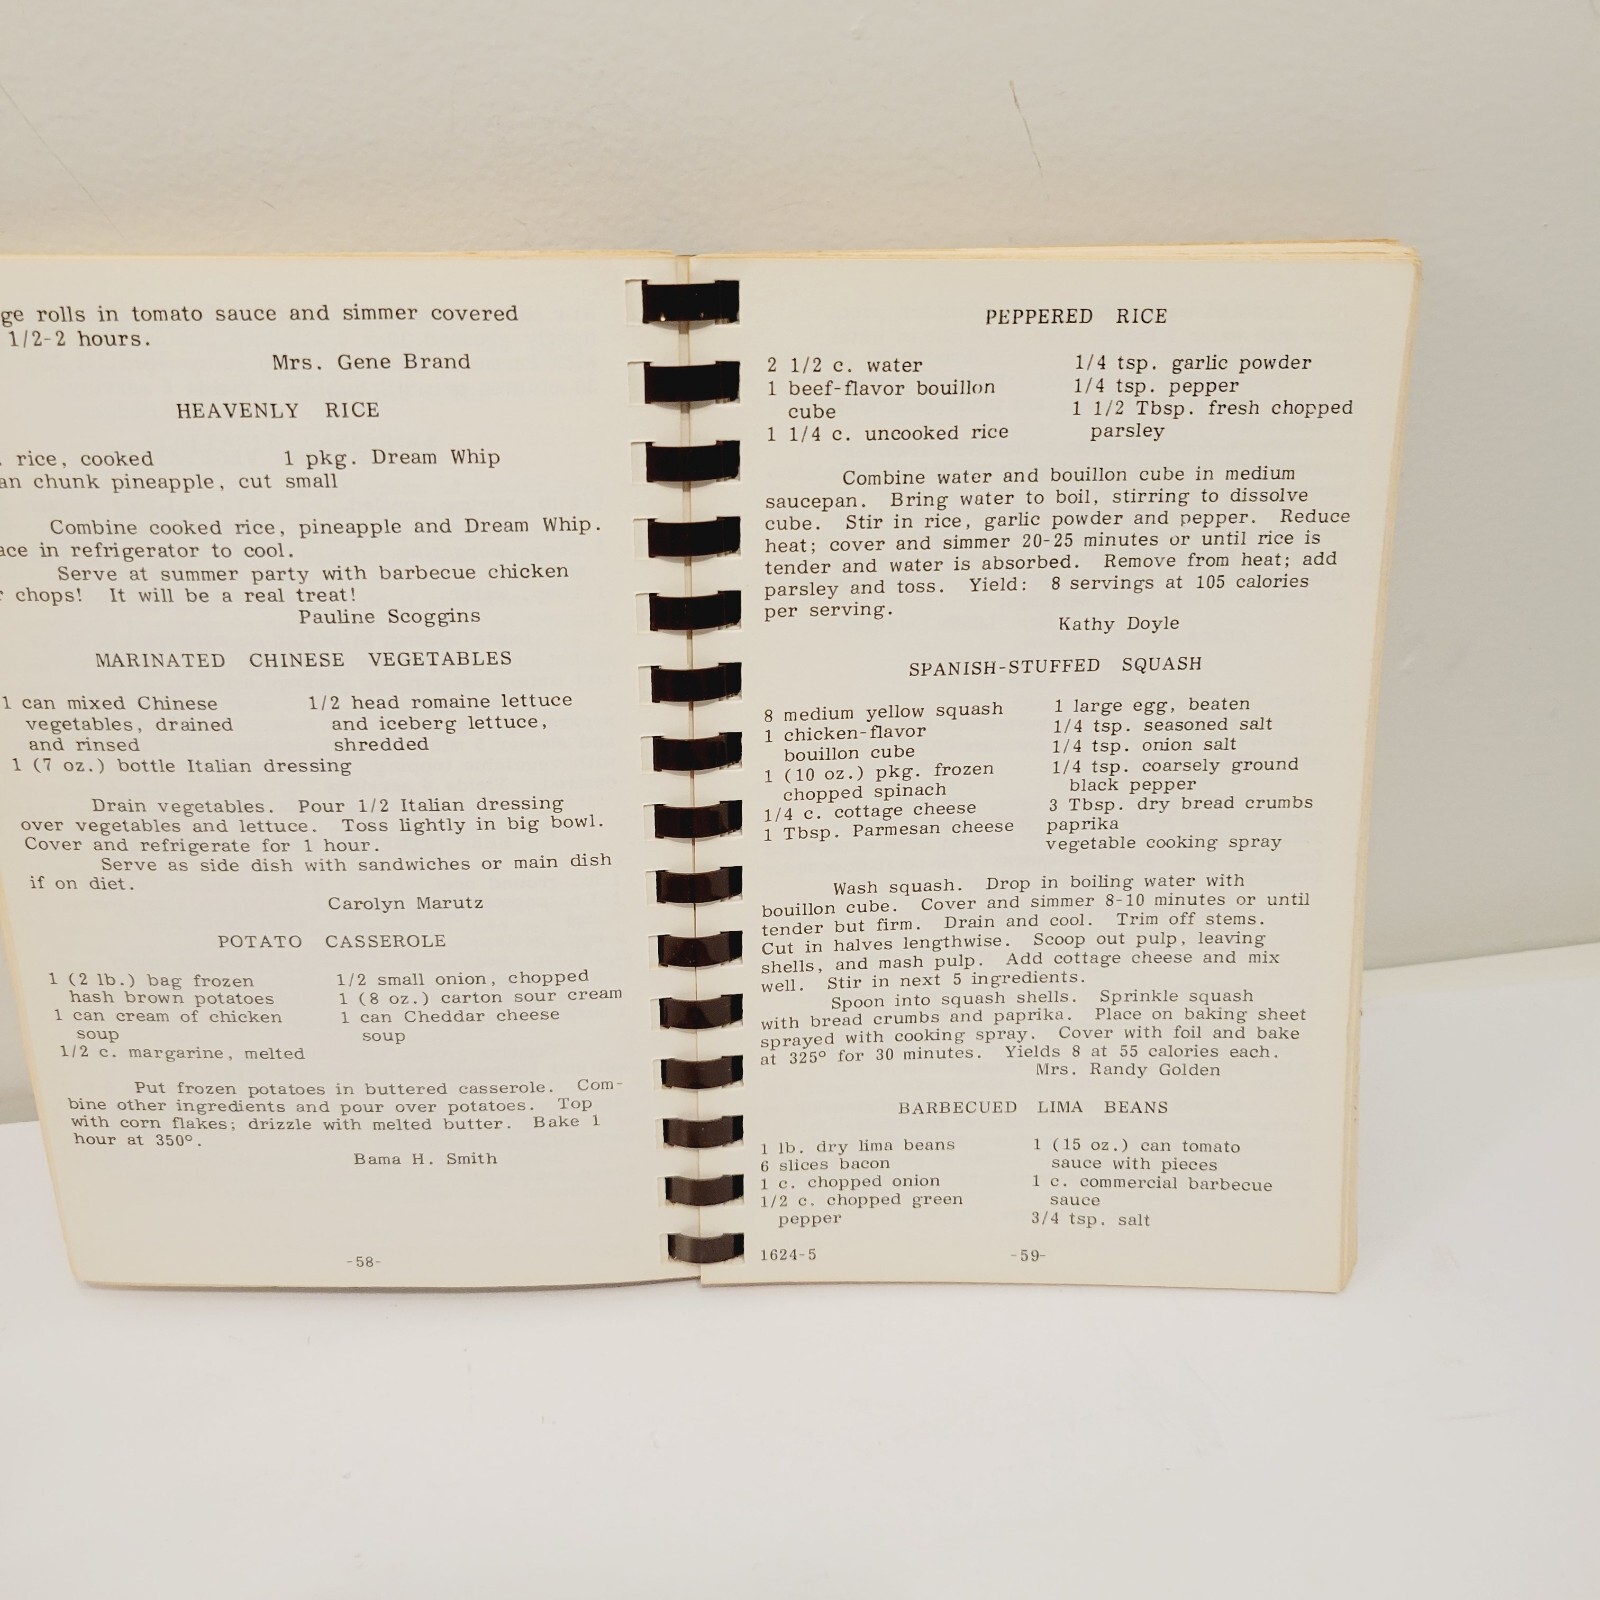 rolls in tomato sauce and simmer covered
1/2-2 hours.
Mrs. Gene Brand
HEAVENLY RICE
rice, cooked 1 pkg. Dream Whip
chunk pineapple, cut small
Combine cooked rice, pineapple and Dream Whip.
in refrigerator to cool.
Serve at summer party with barbecue chicken
chops! It will be a real treat!
Pauline Scoggins
MARINATED CHINESE VEGETABLES
1 can mixed Chinese 1/2 head romaine lettuce
vegetables, drained and iceberg lettuce,
and rinsed shredded
1 (7 oz.) bottle Italian dressing
Drain vegetables. Pour 1/2 Italian dressing
over vegetables and lettuce. Toss lightly in big bowl.
Cover and refrigerate for 1 hour.
Serve as side dish with sandwiches or main dish
if on diet.
Carolyn Marutz
POTATO CASSEROLE
1 (2 lb.) bag frozen 1/2 small onion, chopped
hash brown potatoes 1 (8 oz.) carton sour cream
1 can cream of chicken 1 can Cheddar cheese
soup soup
1/2 c. margarine, melted
Put frozen potatoes in buttered casserole. Com-
bine other ingredients and pour over potatoes. Top
with corn flakes; drizzle with melted butter. Bake 1
hour at 350°.
Bama H. Smith
-58-
PEPPERED RICE
2 1/2 c. water 1/4 tsp. garlic powder
1 beef-flavor bouillon 1/4 tsp. pepper
cube 1 1/2 Tbsp. fresh chopped
1 1/4 c. uncooked rice parsley
Combine water and bouillon cube in medium
saucepan. Bring water to boil, stirring to dissolve
cube. Stir in rice, garlic powder and pepper. Reduce
heat; cover and simmer 20-25 minutes or until rice is
tender and water is absorbed. Remove from heat; add
parsley and toss. Yield: 8 servings at 105 calories
per serving.
Kathy Doyle
SPANISH-STUFFED SQUASH
8 medium yellow squash 1 large egg, beaten
1 chicken-flavor 1/4 tsp. seasoned salt
bouillon cube 1/4 tsp. onion salt
1 (10 oz.) pkg. frozen 1/4 tsp. coarsely ground
chopped spinach black pepper
1/4 c. cottage cheese 3 Tbsp. dry bread crumbs
1 Tbsp. Parmesan cheese paprika
vegetable cooking spray
Wash squash. Drop in boiling water with
bouillon cube. Cover and simmer 8-10 minutes or until
tender but firm. Drain and cool. Trim off stems.
Cut in halves lengthwise. Scoop out pulp, leaving
shells, and mash pulp. Add cottage cheese and mix
well. Stir in next 5 ingredients.
Spoon into squash shells. Sprinkle squash
with bread crumbs and paprika. Place on baking sheet
sprayed with cooking spray. Cover with foil and bake
at 325° for 30 minutes. Yields 8 at 55 calories each.
Mrs. Randy Golden
BARBECUED LIMA BEANS
1 lb. dry lima beans 1 (15 oz.) can tomato
6 slices bacon sauce with pieces
1 c. chopped onion 1 c. commercial barbecue
1/2 c. chopped green sauce
pepper 3/4 tsp. salt
1624-5 -59-